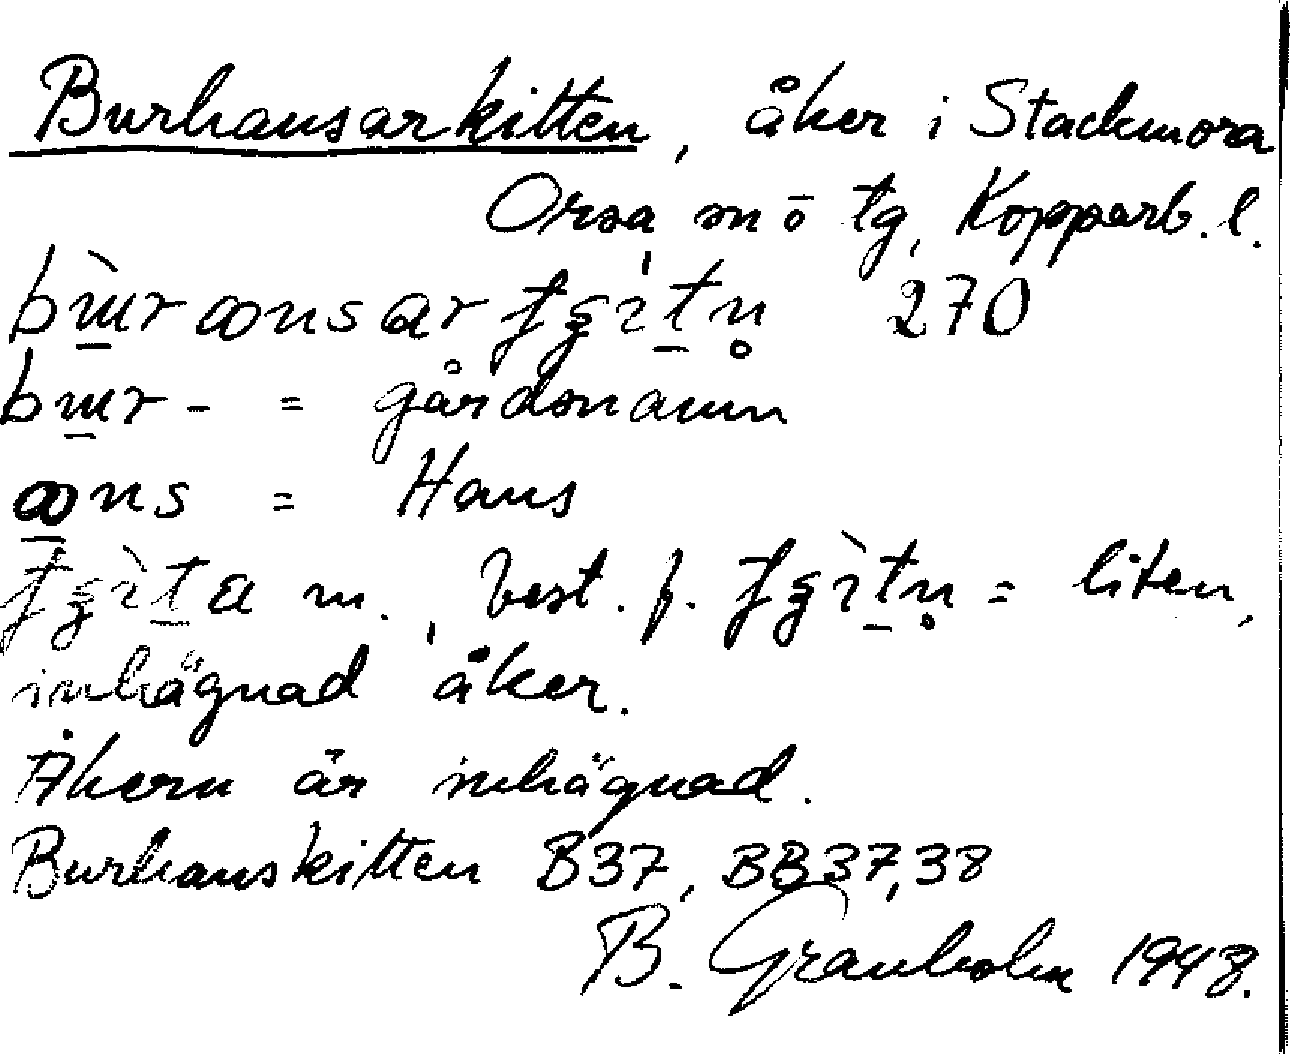 Burhansarkitten, åker i Stackmora
Orsa sn ö tg, Kopparb. l.
270
- = gårdsnamn
= Hans
m., best. f. = liten,
inhägnad åker.
Åkern är inhägnad.
Burhanskitten B37, BB37,38
B. Granholm 1948.